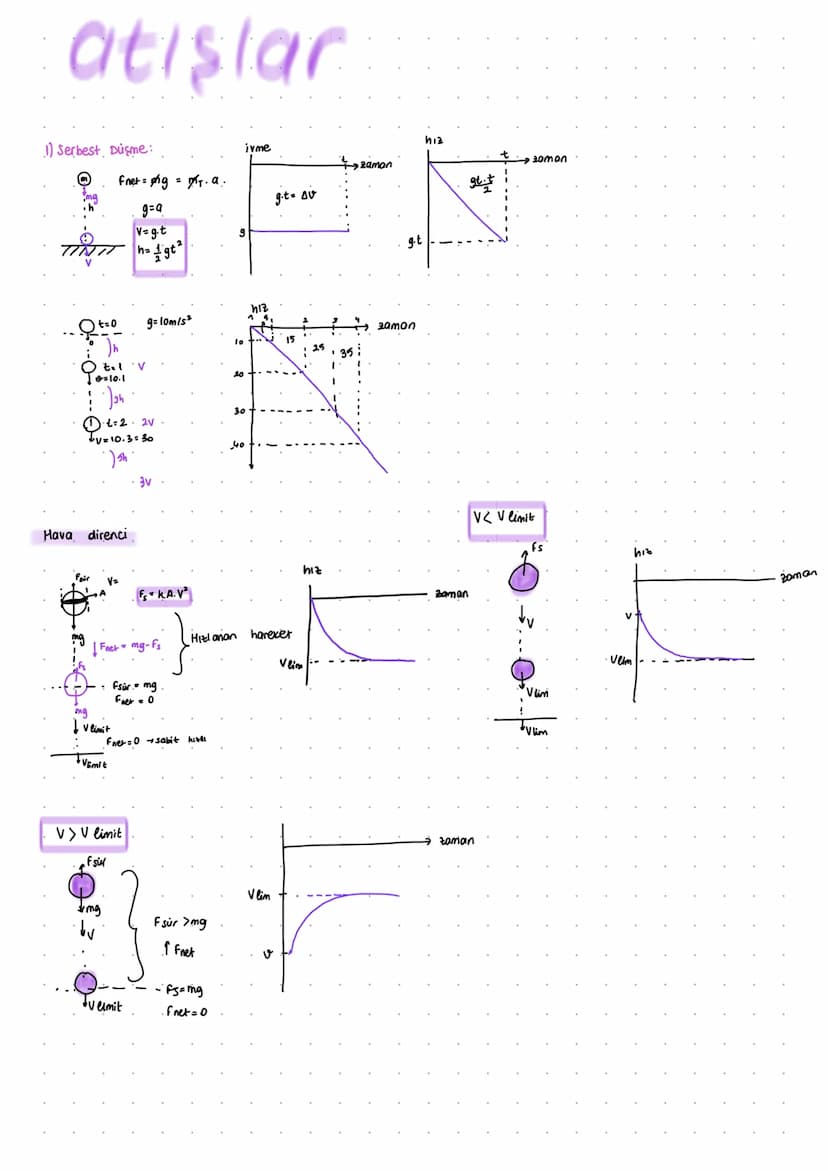 atışlar
1) Serbest Düşme:
m
mg
h
V
Fnet = mg = mT . a.
g=a
V=g.t
h= 1/2 gt²
ivme
t
zaman
g.t= ΔV
g
hız
t
zaman
gt.t/2
g.t
t=0
g=10m/s²
)h
t=1 V
)3h
t=2 2V
V=10.3=30
)5h
3V
hız
1 2 3 4
zaman
15
25
35
10
20
30
40
Hava direnci
A
V=
Fs = k.A.V²
mg
↓Fnet = mg-Fs
Hızlanan hareket
Fs
Fsür = mg
Fnet = 0
mg
V limit
Fnet=0 → sabit hızlı
Vlimit
hız
zaman
Vlim
V < V limit
Fs
V
Vlim
Vlim
hız
zaman
V
Vlim
V > V limit
Fsür
mg
V
Fsür >mg
↑ Fnet
Fs=mg
V limit
Fnet=0
zaman
Vlim
V